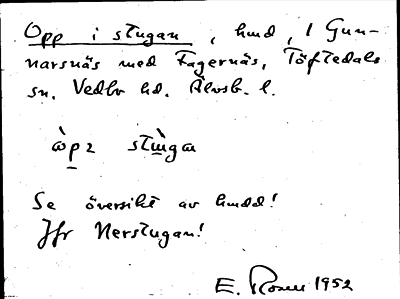 Opp i stugan, hmd, 1 Gun-
narsnäs med Fagernäs, Töftedals
sn. Vedbo hd. Älvsb. l.
Se översikt av hmdd!
Jfr Nerstugan!
E. Rosen 1952